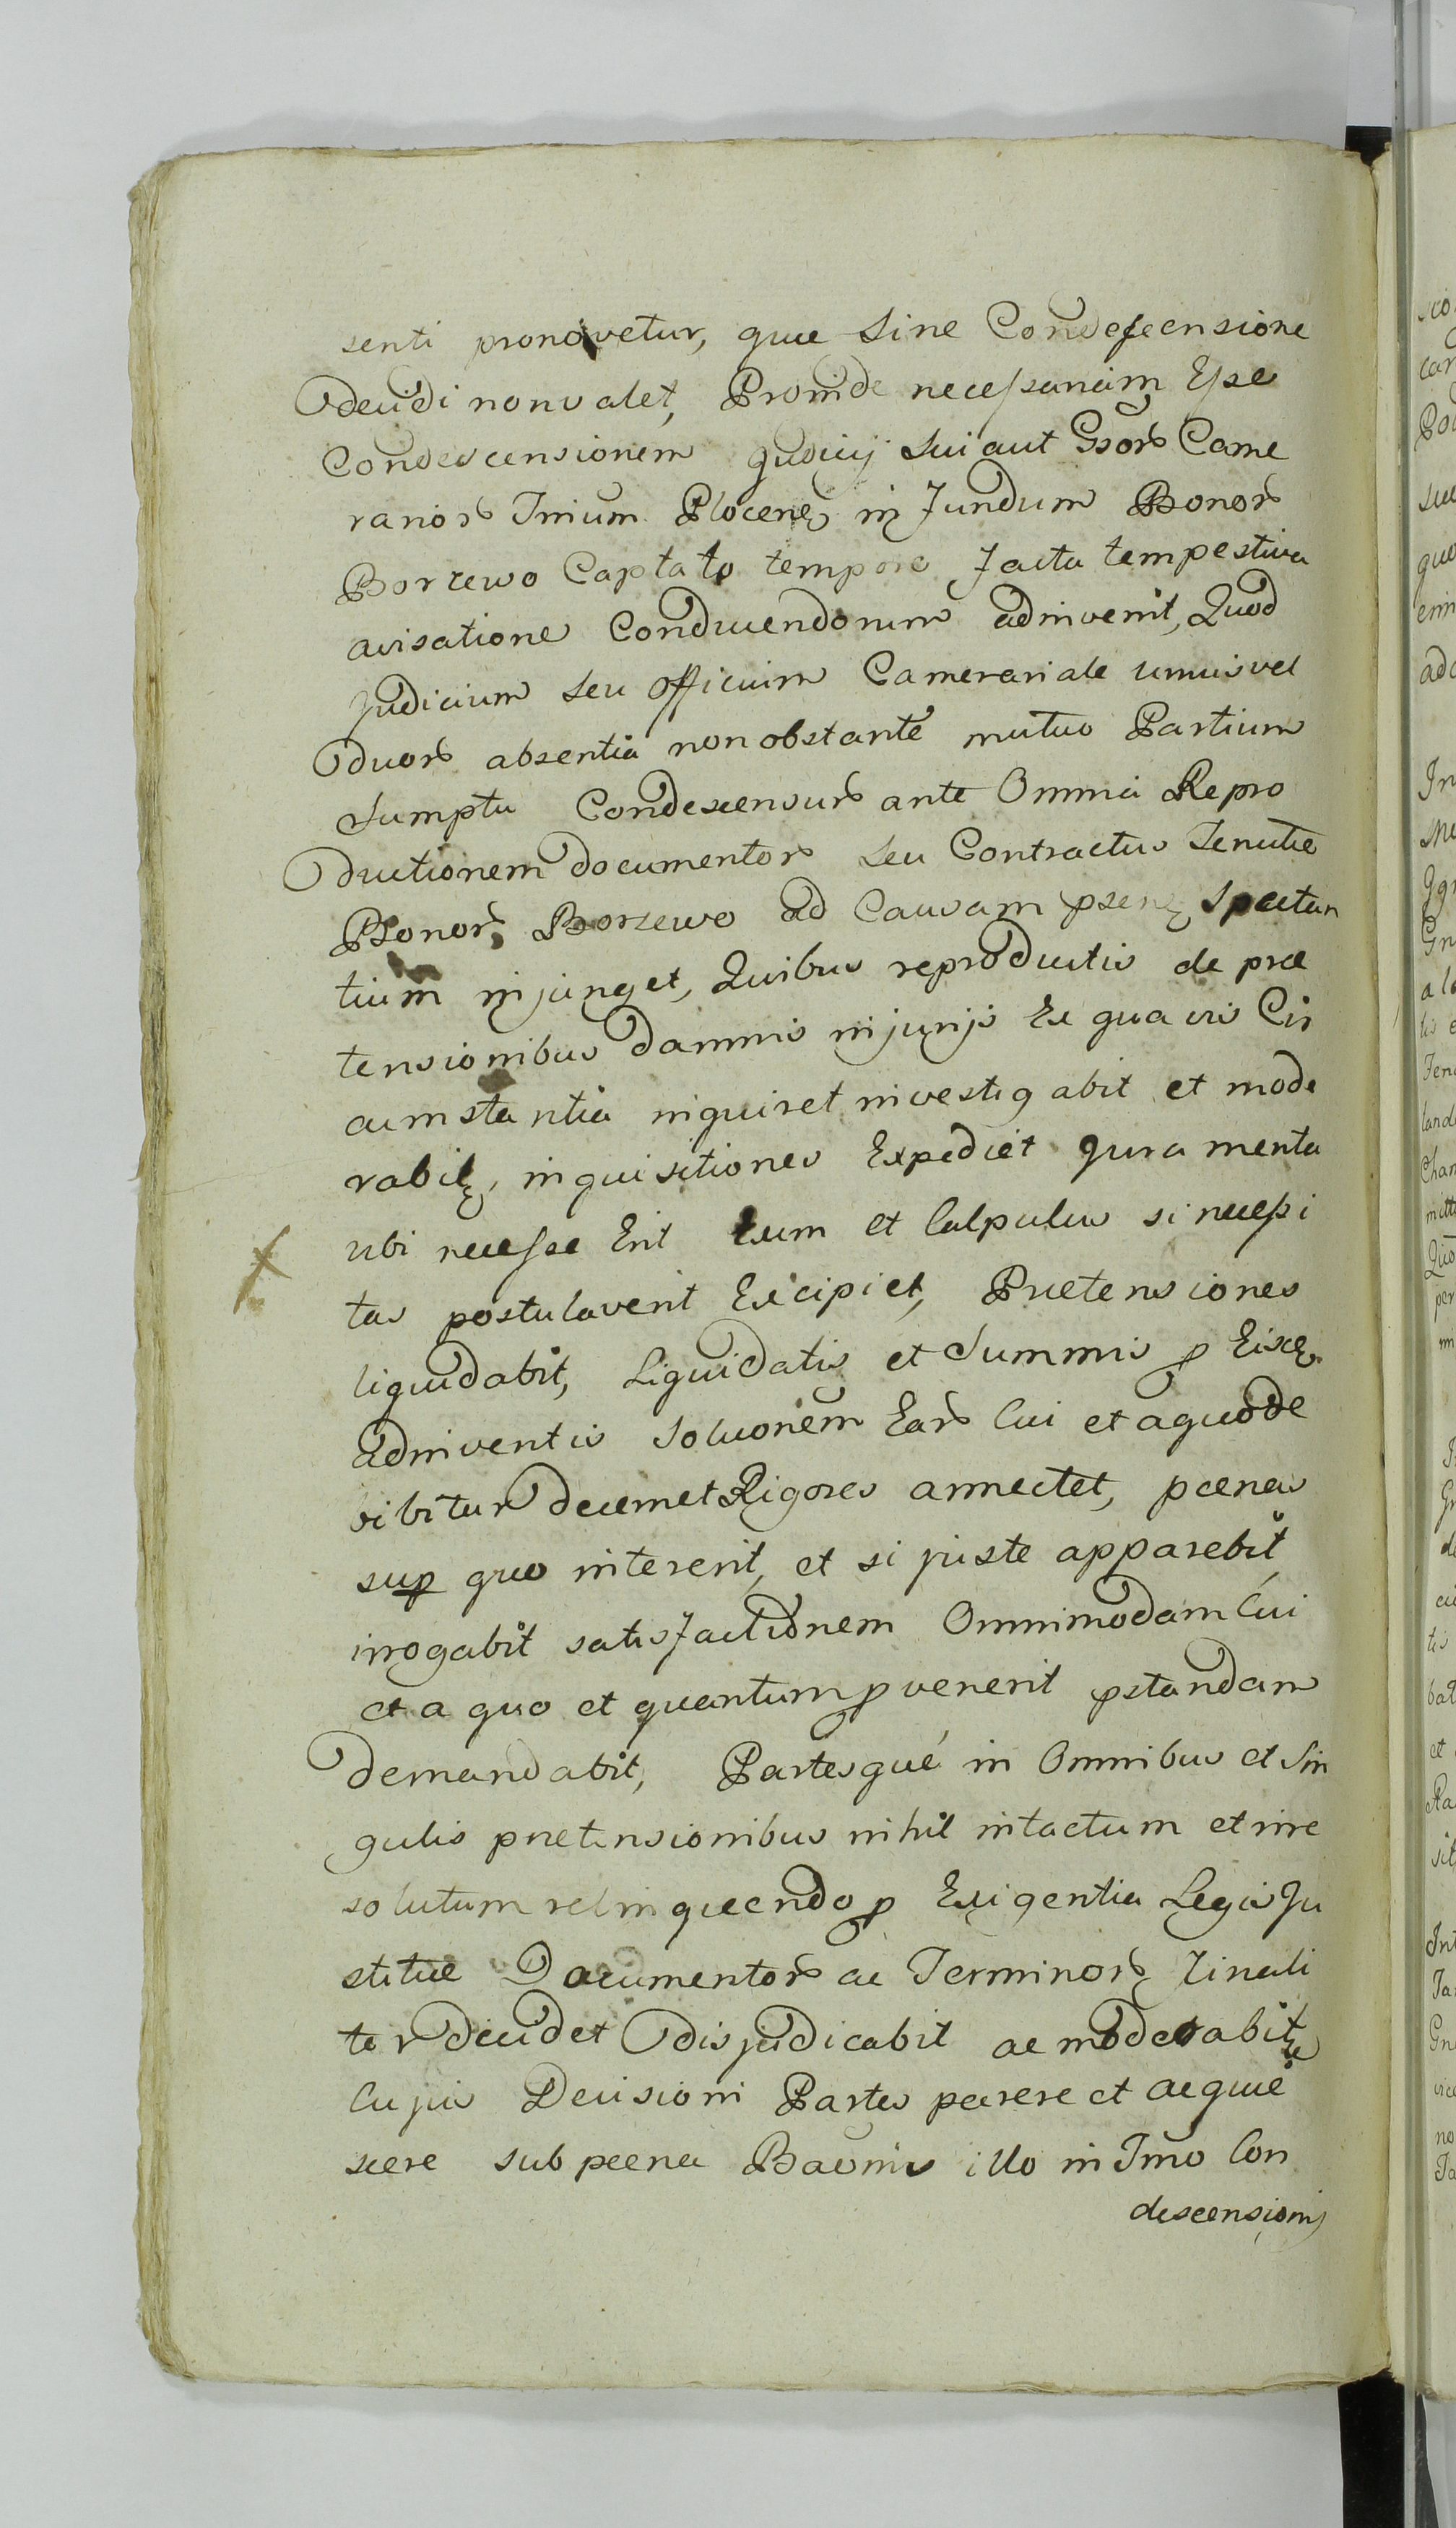 senti promovetur, quæ Sine Condescensione
decidi non valet, Proinde necessarium Esse
Condescensionem Judicij Sui aut Gsorũ Came
rariorũ Trium Plocenę in Fundum Bonorũ
Borzewo Captato tempore facta tempestiva
avisatione Conducendorum adinvenit, Quod
Judicium Seu officium Camerariale unius vel
duorũ absentia non obstante mutuo Partium
Sumptu Condescensurũ ante Omnia Repro
ductionem documentorũ Seu Contractus Tenutæ
Bonorũ, Borzewo ad Causam psenę Spectan
tium injunget, Quibus reproductis de præ
tensionibus damnis injurijs Ex quavis Cir
cumstantia inquiret investigabit et mode
rabitę, inquisitiones Expediet Juramenta
ubi necesse Erit Eum et Calculus si necessi
tas postulaverit Excipiet, Prætensiones
liquidabit, Liquidatis et Summis p Eisdę
adinventis Soluonem Earũ Cui et a quo de
bibitur decernet Rigores annectet, pœnas
sup quo intererit, et si juste apparebit,
irrogabit satisfactionem Omnimodam Cui
et a quo et quantum pvenerit pstandam
demandabit, Partesqué in Omnibus et Sin
gulis prætensionibus nihil intactum et irre
solutum relinquendo p Exigentia Legis Ju
stitiæ Documentorũ ac Terminorũ Finali
ter decidet disjudicabit ac moderabitę
Cujus Decisioni Partes parere et acquie
scere sub pœna Baonis illo in Tmo Con
descensionis